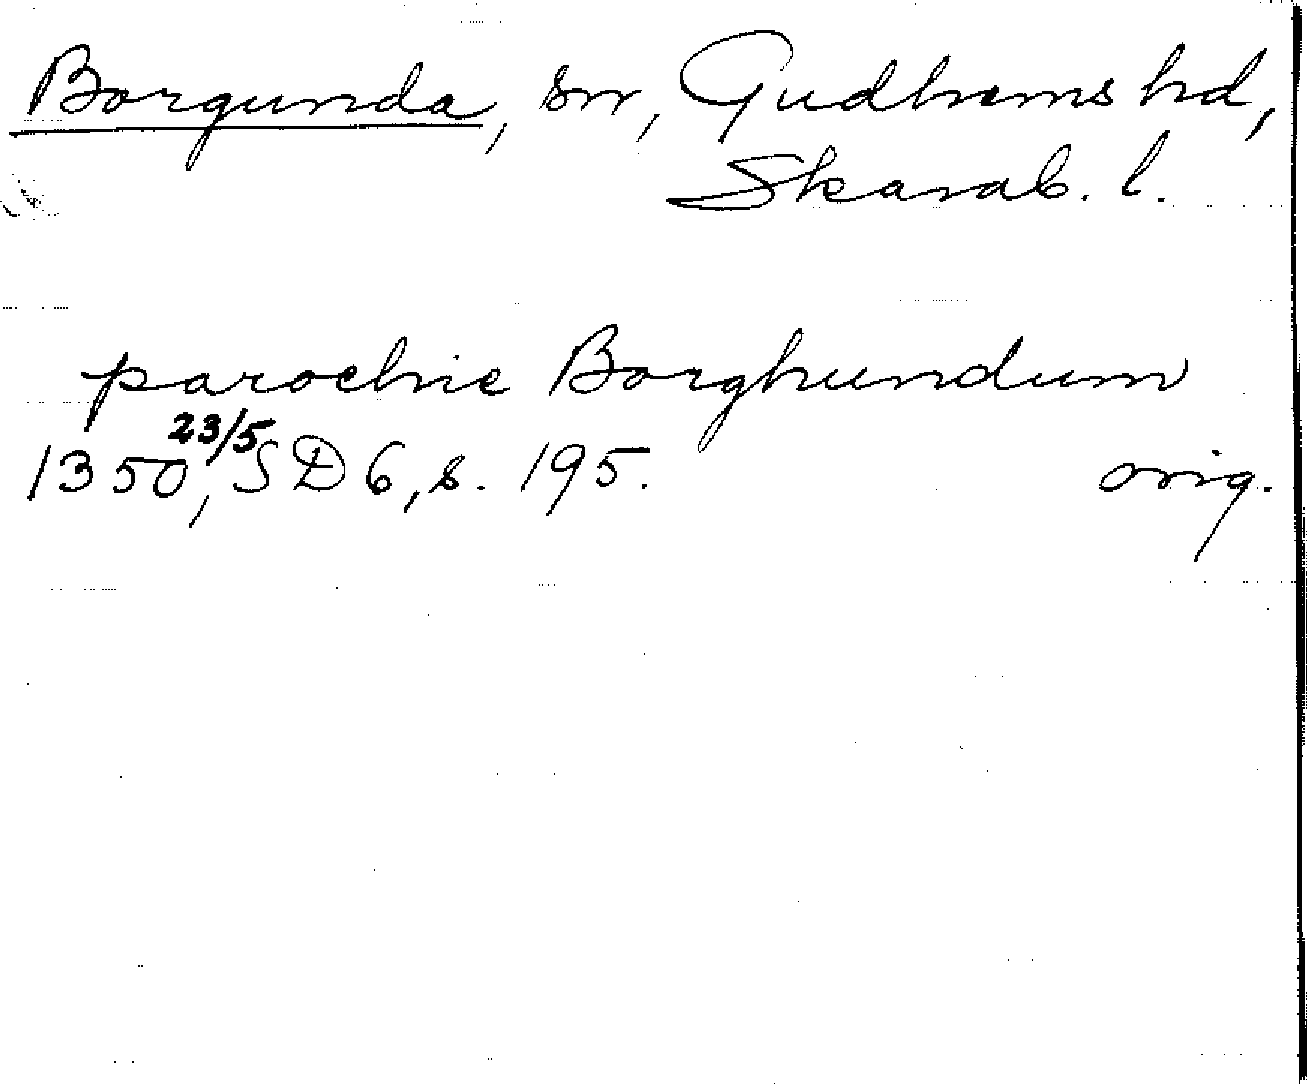 Borgunda, sn, Gudhems hd,
Skarab. l.
parochie Borghundum
1350 23/5, SD 6, s. 195. orig.